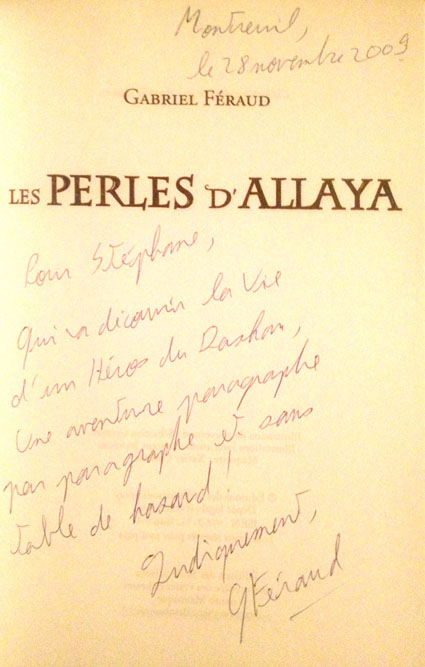 Montreuil,
le 28 novembre 2009
GABRIEL FÉRAUD
LES PERLES D'ALLAYA
Pour Stéphane,
qui va découvrir la vie
d'un Héros du
Une aventure paragraphe
par paragraphe et sans
table de hasard !
Ludiquement,
GFéraud